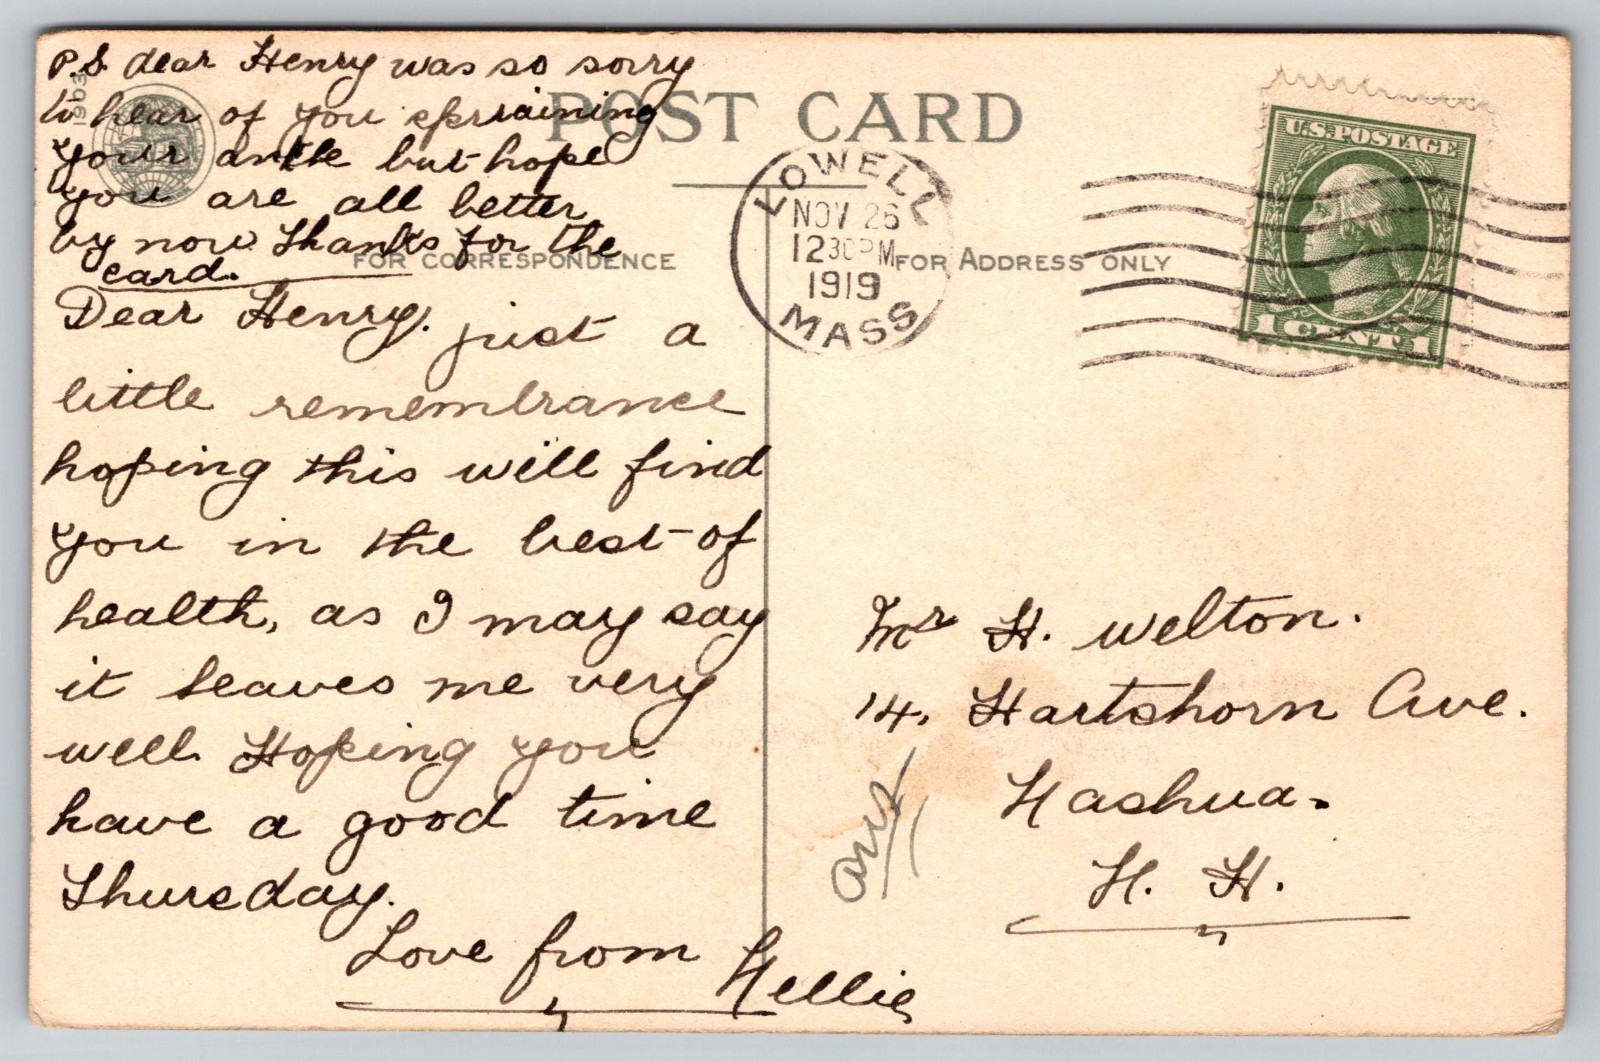 P.S. dear Henry was so sorry
to hear of you spraining
your ankle but hope
you are all better
by now. Thanks for the
card.
1903
POST CARD
FOR CORRESPONDENCE
FOR ADDRESS ONLY
LOWELL
NOV 26
1230PM
1919
MASS
U.S. POSTAGE
1 CENT 1
Dear Henry. just a
little remembrance
hoping this will find
you in the best of
health, as I may say
it leaves me very
well. Hoping you
have a good time
Thursday.
Love from Nellie
Mr H. Welton.
14, Hartshorn Ave.
Nashua.
N. H.
ans